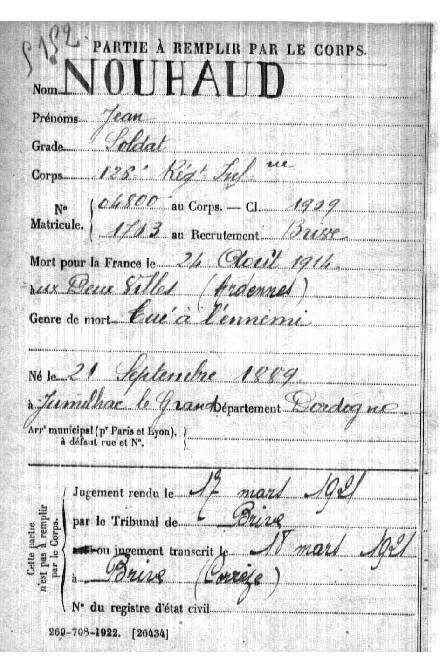 PARTIE À REMPLIR PAR LE CORPS.
Nom NOUHAUD
Prénoms Jean
Grade Soldat
Corps 126e Régt Infie
No Matricule. { 04800 au Corps. — Cl. 1909
1713 au Recrutement Brive
Mort pour la France le 24 Août 1914
aux Deux Villes (Ardennes)
Genre de mort Tué à l'ennemi
Né le 21 Septembre 1889
à Jumilhac le Grand Département Dordogne
Arrt municipal (pr Paris et Lyon), }
à défaut rue et No.
Cette partie n'est pas à remplir par le Corps.
Jugement rendu le 17 mars 1921
par le Tribunal de Brive
ou jugement transcrit le 18 mars 1921
à Brive (Corrèze)
No du registre d'état civil
269-708-1922. [26434]